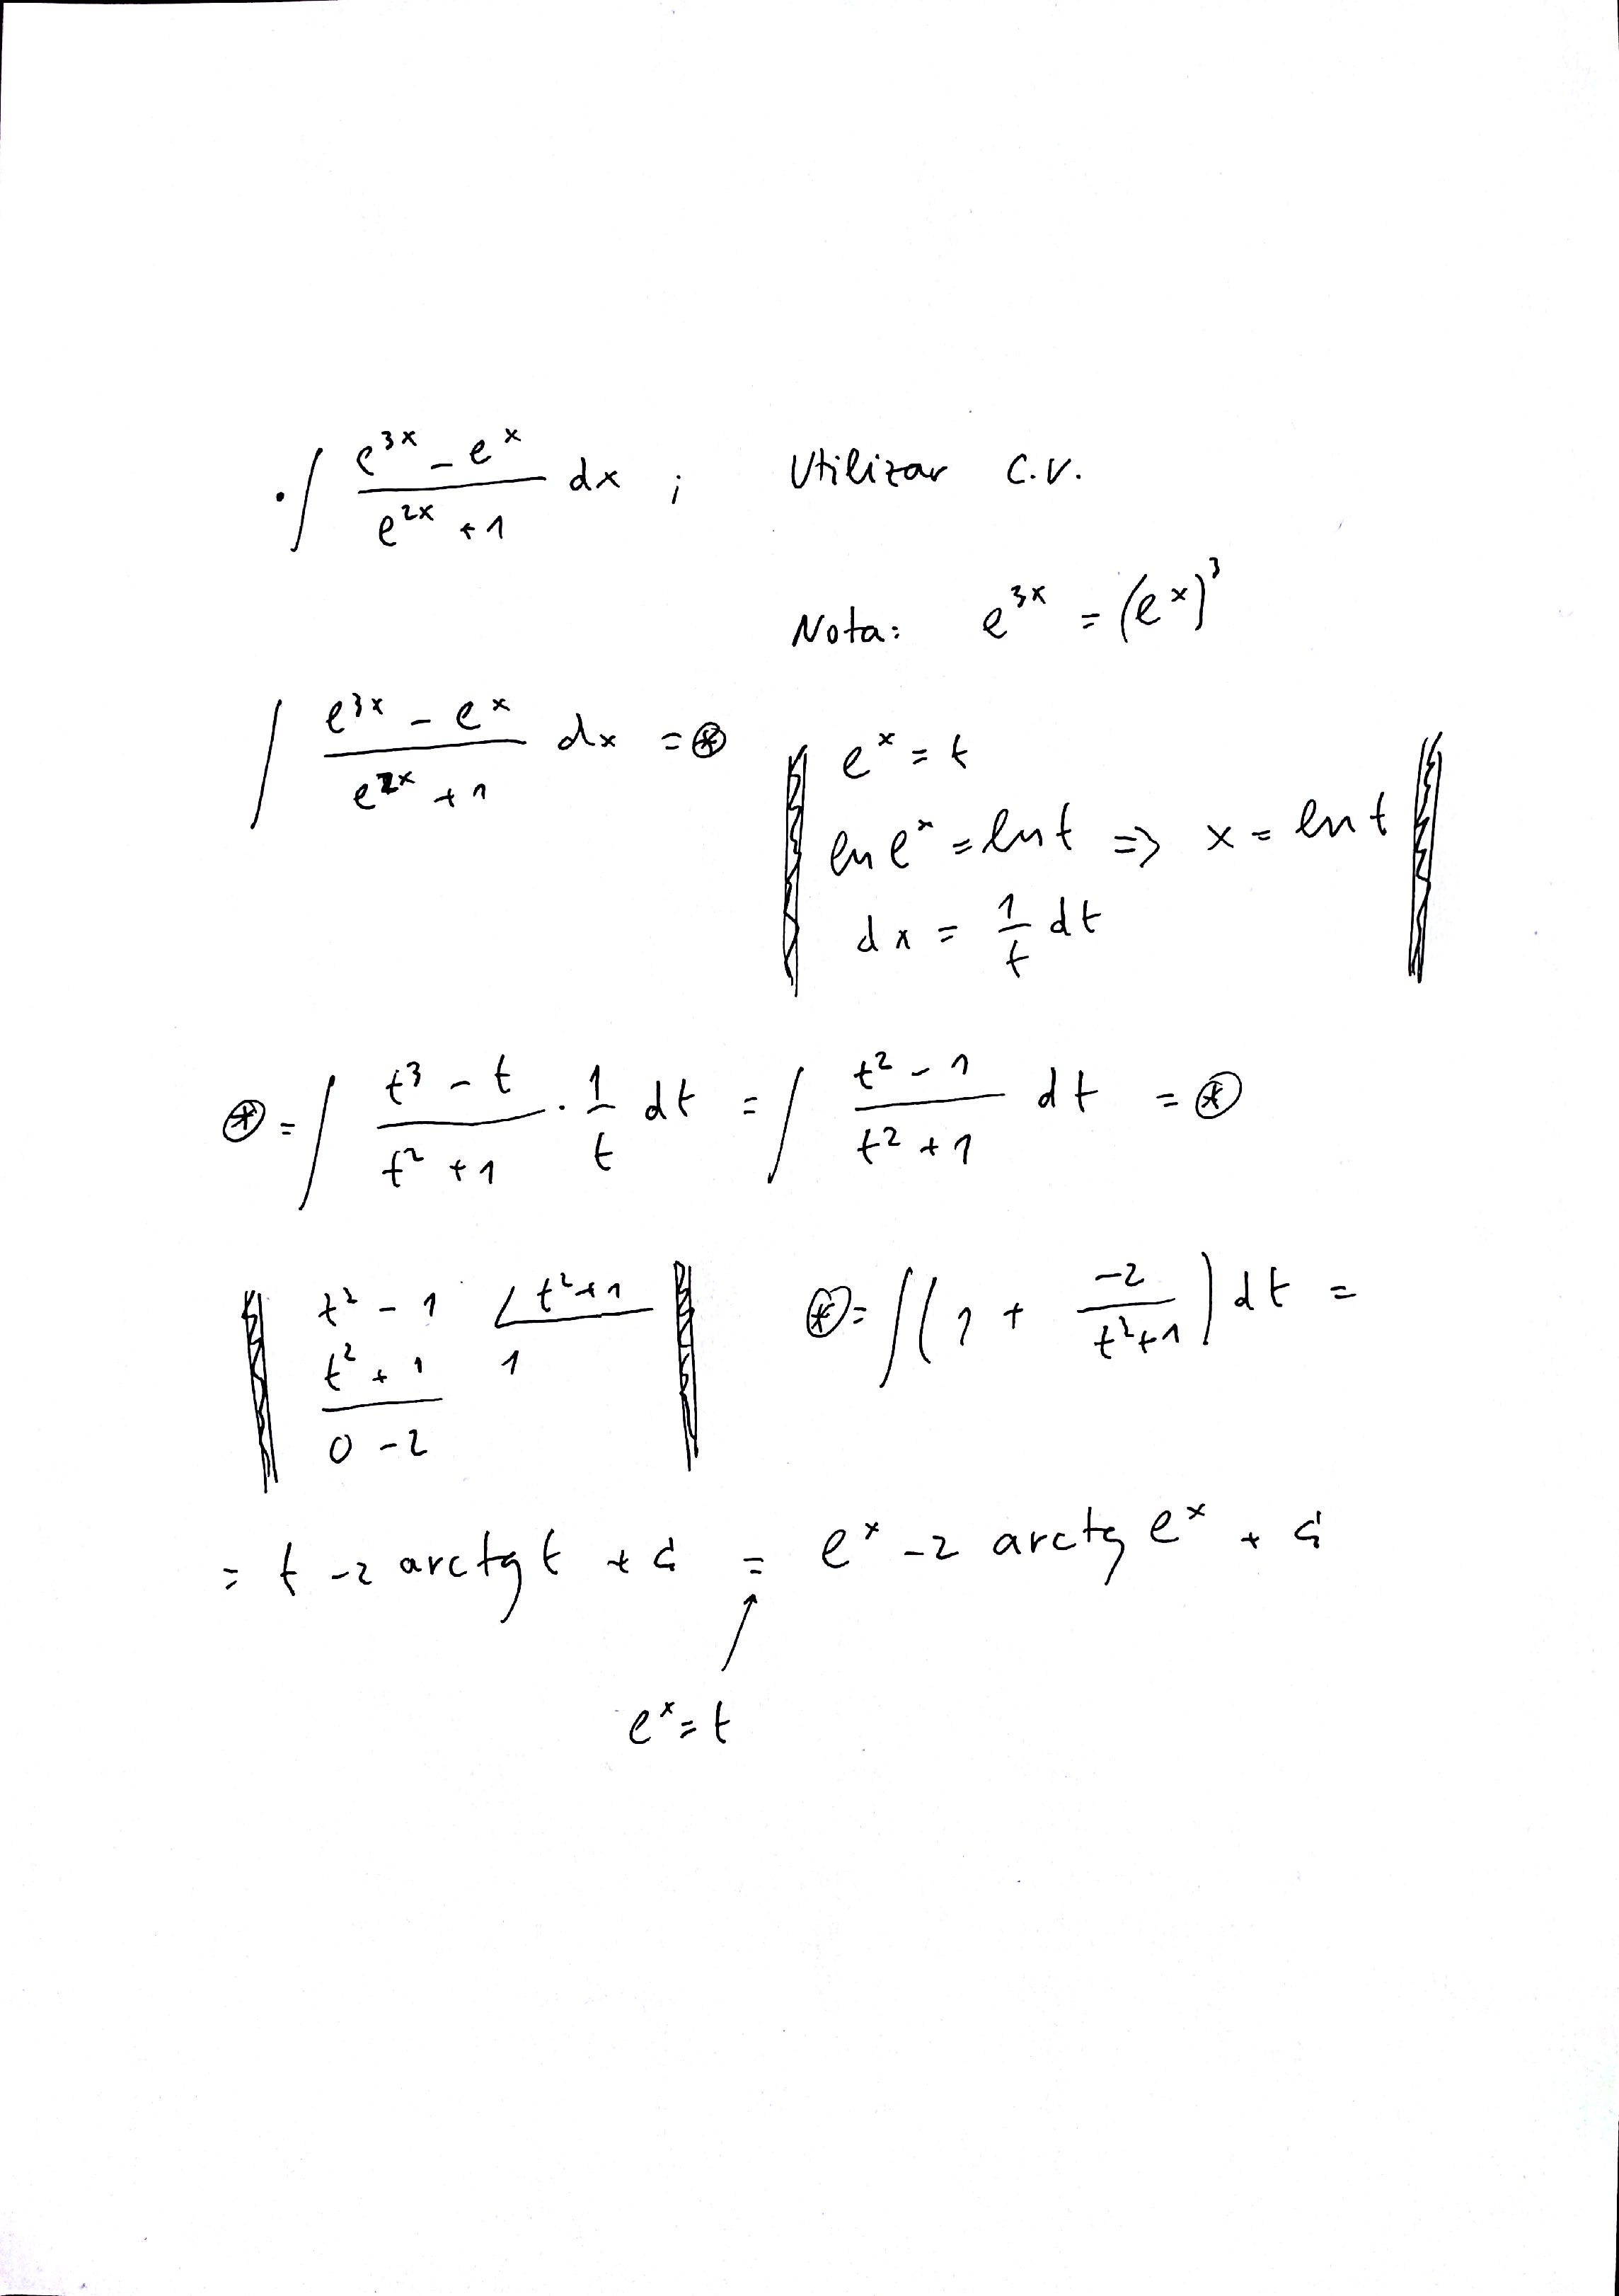 · ∫ (e^{3x} - e^x)/(e^{2x} + 1) dx ; Utilizar C.V.
Nota: e^{3x} = (e^x)^3
∫ (e^{3x} - e^x)/(e^{2x} + 1) dx = ⊛
e^x = t
ln e^x = ln t ⇒ x = ln t
dx = 1/t dt
⊛ = ∫ (t^3 - t)/(t^2 + 1) · 1/t dt = ∫ (t^2 - 1)/(t^2 + 1) dt = ⊛
t^2 - 1 ∠ t^2 + 1
t^2 + 1 1
0 - 2
⊛ = ∫ (1 + (-2)/(t^2 + 1)) dt =
= t - 2 arctg t + C = e^x - 2 arctg e^x + C
e^x = t